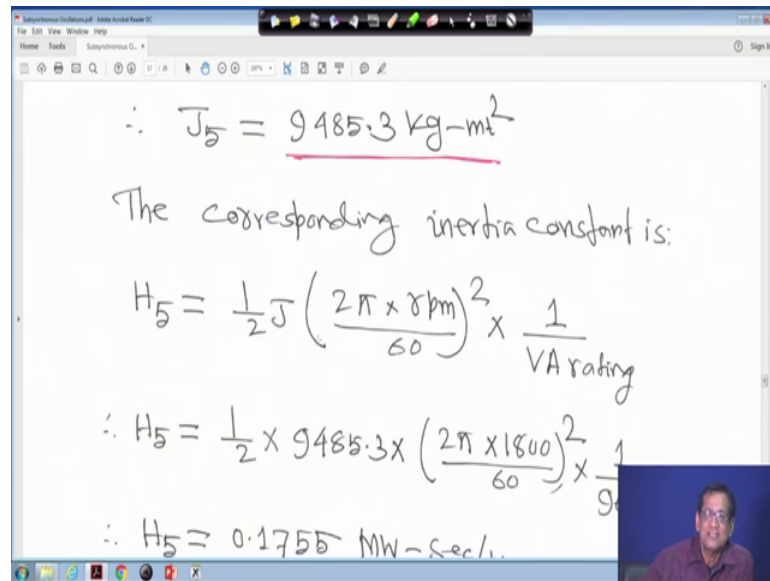 Subsynchronous Oscillations.pdf - Adobe Acrobat Reader DC
File Edit View Window Help
Home Tools Subsynchronous O... ×
Sign In
17 / 26
∴ J5 = 9485.3 kg-mt²
The corresponding inertia constant is:
H5 = 1/2 J (2π × rpm / 60)² × 1 / VA rating
∴ H5 = 1/2 × 9485.3 × (2π × 1800 / 60)² × 1
∴ H5 = 0.1755 MW-Sec/